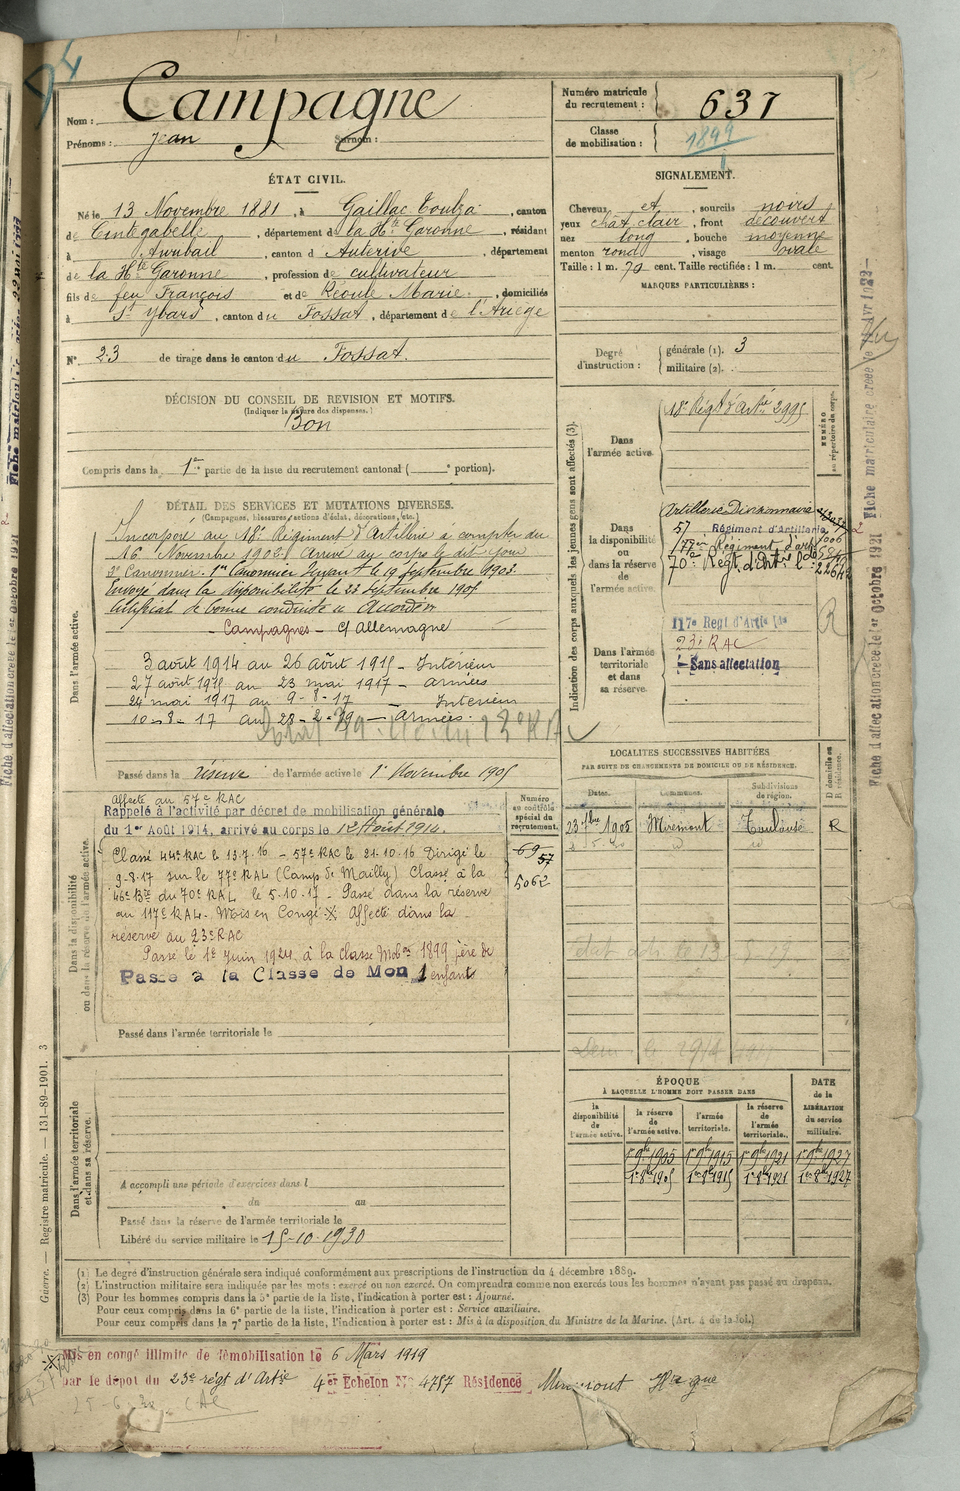 Nom : Campagne
Prénoms : Jean Surnom :
Numéro matricule du recrutement : 637
Classe de mobilisation : 1899
ÉTAT CIVIL.
Né le 13 Novembre 1881, à Gaillac Toulza, canton
de Cintegabelle, département de la Hte Garonne, résidant
à Auribail, canton d'Auterive, département
de la Hte Garonne, profession de cultivateur
fils de feu François et de Réoule Marie, domiciliés
à St Ybars, canton du Fossat, département de l'Ariège
N° 23 de tirage dans le canton du Fossat.
SIGNALEMENT.
Cheveux et, sourcils noirs
yeux chât clair, front découvert
nez long, bouche moyenne
menton rond, visage ovale
Taille : 1 m. 70 cent. Taille rectifiée : 1 m. cent.
MARQUES PARTICULIÈRES :
Degré d'instruction : générale (1). 3
militaire (2).
DÉCISION DU CONSEIL DE REVISION ET MOTIFS.
(Indiquer la nature des dispenses.)
Bon
Compris dans la 1re partie de la liste du recrutement cantonal ( e portion).
DÉTAIL DES SERVICES ET MUTATIONS DIVERSES.
(Campagnes, blessures, actions d'éclat, décorations, etc.)
Dans l'armée active.
Incorporé au 18e Régiment d'Artillerie à compter du
16 Novembre 1902. Arrivé au corps le dit jour
2e Canonnier. 1er Canonnier servant le 19 Septembre 1903.
Envoyé dans la disponibilité le 23 Septembre 1905
Certificat de bonne conduite "Accordé"
Campagnes - C/ Allemagne
3 août 1914 au 26 août 1915 - Intérieur
27 août 1915 au 23 mai 1917 - armées
24 mai 1917 au 9-8-17 - Intérieur
10-8-17 au 28-2-19 - Armées.
Passé dans la réserve de l'armée active le 1er Novembre 1905
Indication des corps auxquels les jeunes gens sont affectés (3).
NUMÉRO au répertoire du corps.
Dans l'armée active.
18e Régt d'Artie 2995
Dans la disponibilité ou dans la réserve de l'armée active.
Artillerie Divisionnaire
57 Régiment d'Artillerie
70e Régt d'Artie
Dans l'armée territoriale et dans sa réserve.
117e Regt d'Artie Lde
23e RAC
Sans affectation
R
LOCALITÉS SUCCESSIVES HABITÉES
PAR SUITE DE CHANGEMENTS DE DOMICILE OU DE RÉSIDENCE.
Dates. Communes. Subdivisions de région. D domicile ou R résidence.
23 7bre 1905 Miremont Toulouse R
Dans la disponibilité ou dans la réserve de l'armée active.
Numéro au contrôle spécial du recrutement.
69
57
5062
Affecté au 57e RAC
Rappelé à l'activité par décret de mobilisation générale
du 1er Août 1914, arrivé au corps le 12 Août 1914.
Classé 44e RAC le 13.7.16 - 57e RAC le 21.10.16 Dirigé le
9-8-17 sur le 77e RAL (Camp de Mailly) Classé à la
46e Bie du 70e RAL le 5.10.17 - Passé dans la réserve
au 117e RAL. Mis en Congé ※ Affecté dans la
réserve au 23e RAC
Passé le 1er Juin 1924 à la classe Mobon 1899 père de
Passé à la Classe de Mob 1 enfant
Passé dans l'armée territoriale le
Dans l'armée territoriale et dans sa réserve.
A accompli une période d'exercices dans l
du au
Passé dans la réserve de l'armée territoriale le
Libéré du service militaire le 15-10-1930
ÉPOQUE
À LAQUELLE L'HOMME DOIT PASSER DANS
DATE de la LIBÉRATION du service militaire.
la disponibilité de l'armée active. la réserve de l'armée active. l'armée territoriale. la réserve de l'armée territoriale.
1er 9bre 1905 1er 9bre 1915 1er 9bre 1921 1er 9bre 1927
1er 8bre 1905 1er 8bre 1915 1er 8bre 1921 1er 8bre 1927
(1) Le degré d'instruction générale sera indiqué conformément aux prescriptions de l'instruction du 4 décembre 1889.
(2) L'instruction militaire sera indiquée par les mots : exercé ou non exercé. On comprendra comme non exercés tous les hommes n'ayant pas passé au drapeau.
(3) Pour les hommes compris dans la 5e partie de la liste, l'indication à porter est : Ajourné.
Pour ceux compris dans la 6e partie de la liste, l'indication à porter est : Service auxiliaire.
Pour ceux compris dans la 7e partie de la liste, l'indication à porter est : Mis à la disposition du Ministre de la Marine. (Art. 4 de la loi.)
Guerre. — Registre matricule. — 131-89-1901. 3
※ Mis en congé illimité de démobilisation le 6 Mars 1919
par le dépôt du 23e régt d'Artie 4er Echelon N° 4787 Résidence Miremont Hte Gne
Fiche d'affectation créée le 1er octobre 1921